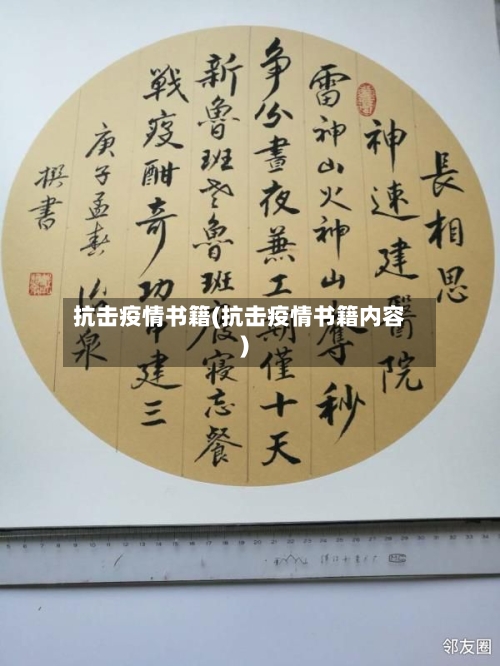 長相思
神速建醫院
雷神山火神山奪秒
争分晝夜兼工期僅十天
新魯班老魯班廢寢忘餐
戰疫酣奇功中建三
庚子孟春 泉
撰書
抗击疫情书籍(抗击疫情书籍内容
)
邻友圈